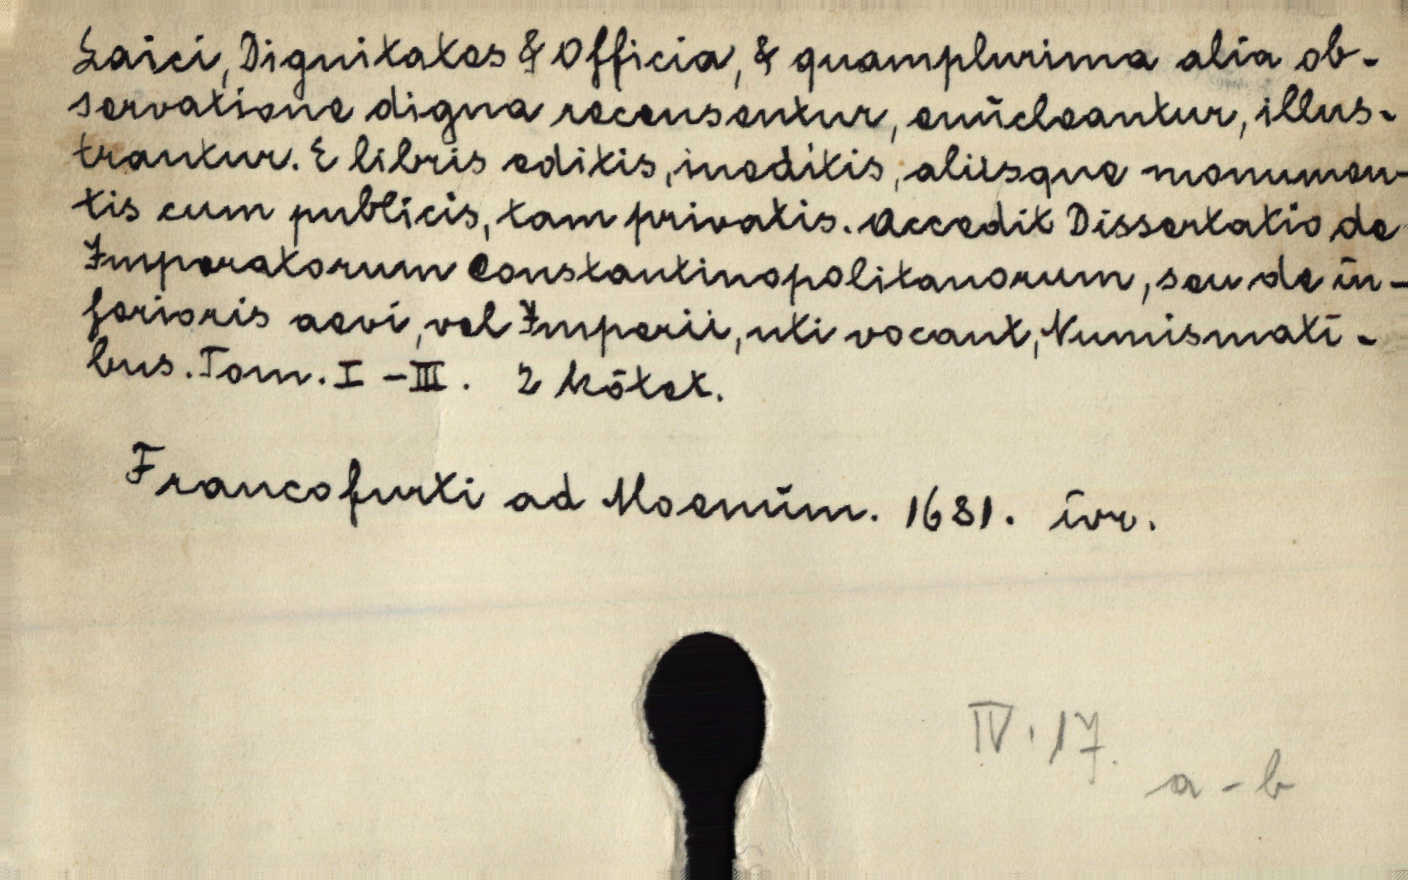 Laici, Dignitates & Officia, & quamplurima alia ob-
servatione digna recensentur, enucleantur, illus-
trantur. E libris editis, ineditis, aliisque monumen-
tis cum publicis, tam privatis. Accedit Dissertatio de
Imperatorum Constantinopolitanorum, seu de in-
ferioris aevi, vel Imperii, uti vocant, Numismati-
bus. Tom. I - III. 2 kötet.
Francofurti ad Moenum. 1681. ívr.
IV. 17.
a - b